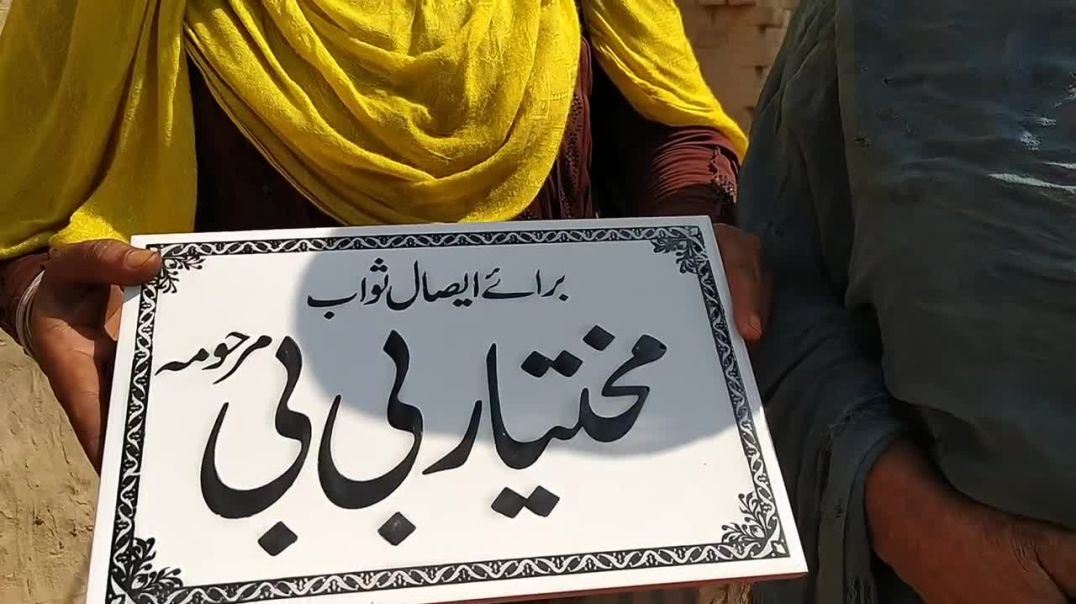 برائے ایصال ثواب
مختیار بی بی مرحومہ